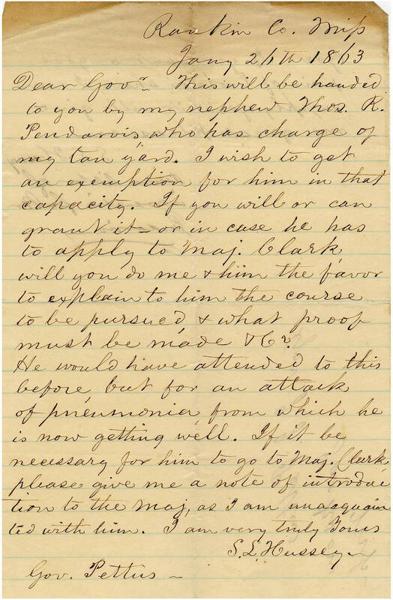 Rankin Co. Miss
Jany 26th 1863
Dear Govr. This will be handed
to you by my nephew Thos. R.
Pendarvis who has charge of
my tan yard. I wish to get
an exemption for him in that
capacity. If you will or can
grant it - or in case he has
to apply to Maj. Clark
will you do me & him the favor
to explain to him the course
to be pursued & what proof
must be made &c?
He would have attended to this
before but for an attack
of pneumonia from which he
is now getting well. If it be
necessary for him to go to Maj. Clark,
please give me a note of introduc
tion to the Maj, as I am unacquain
ted with him. I am very truly Yours
S. L. Hussey
Gov. Pettus